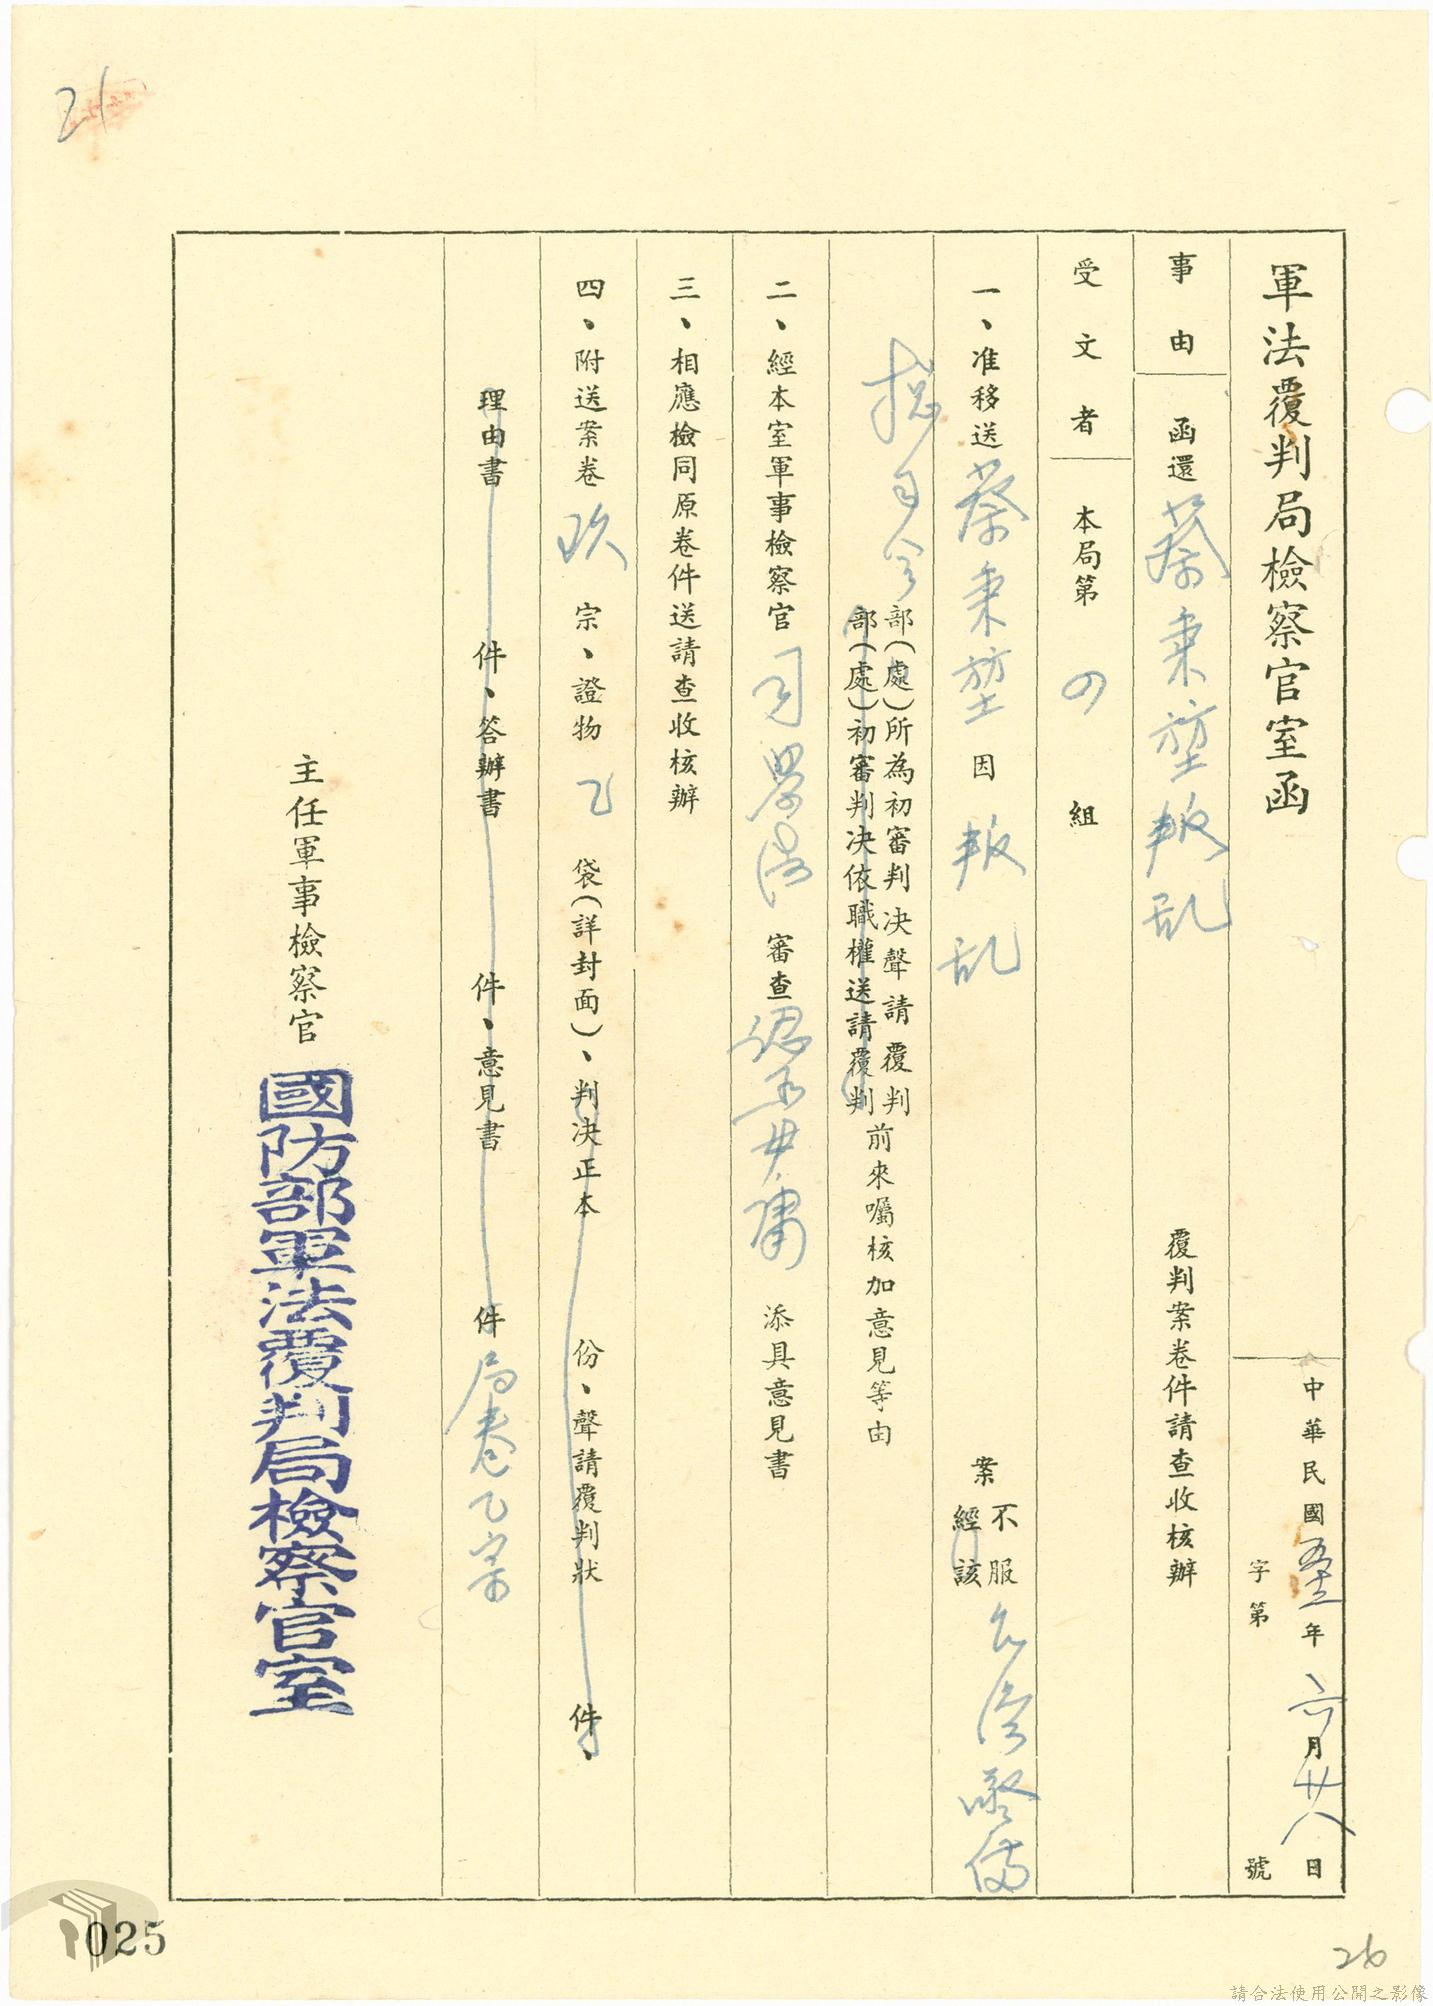 軍法覆判局檢察官室函
中華民國五十二年六月廿八日
字第 號
事由 函還蔡秉堃叛乱 覆判案卷件請查收核辦
受文者 本局第四組
一、准移送蔡秉堃因叛乱 案不服台湾警備
經該
總司令部(處)所為初審判決聲請覆判前來囑核加意見等由
部(處)初審判決依職權送請覆判
二、經本室軍事檢察官 審查認為毋庸添具意見書
三、相應檢同原卷件送請查收核辦
四、附送案卷玖宗、證物乙袋(詳封面)、判決正本 份、聲請覆判狀 件、
理由書 件、答辦書 件、意見書 件局卷乙宗
主任軍事檢察官
國防部軍法覆判局檢察官室
21
025
26
請合法使用公開之影像